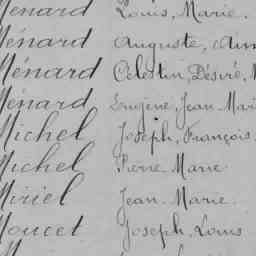 Ménard Louis, Marie.
Ménard Auguste,
Ménard Célestin, Désiré,
Ménard Eugène, Jean Mari
Michel Joseph, François
Michel Pierre Marie.
Miriel Jean Marie.
Moucet Joseph Louis